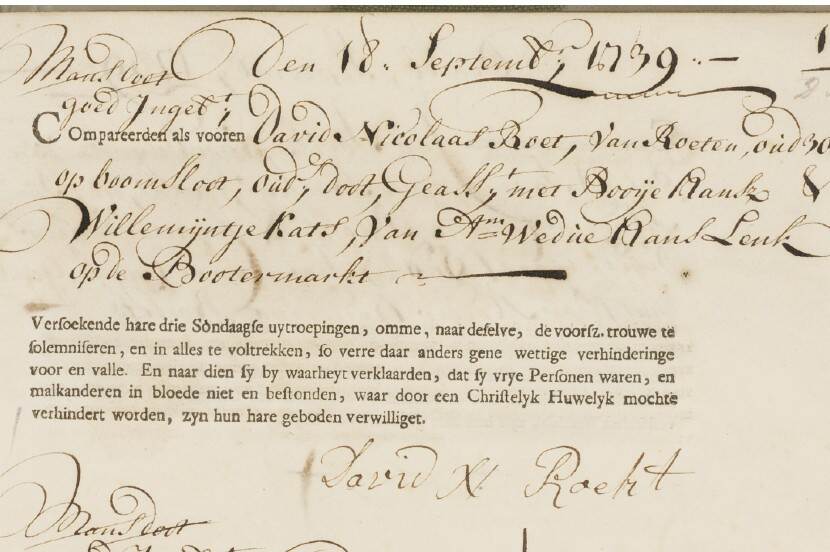 Den 18. Septemb:r 1739. —
Mans doot
goed Inget:t
Compareerden als vooren David Nicolaas Roet, van Roeten, oud 30
op boomsloot, oud:s doot, Geass:t met Booije Hansz &
Willemijntje Kats, van A:m Wedue Hans Lenk
op de Bootermarkt
Versoekende hare drie Sondaagse uytroepingen, omme, naar deselve, de voorsz. trouwe te
solemniseren, en in alles te voltrekken, so verre daar anders gene wettige verhinderinge
voor en valle. En naar dien sy by waarheyt verklaarden, dat sy vrye Personen waren, en
malkanderen in bloede niet en bestonden, waar door een Christelyk Huwelyk mochte
verhindert worden, zyn hun hare geboden verwilliget.
David Ns Roeht
Mans doot